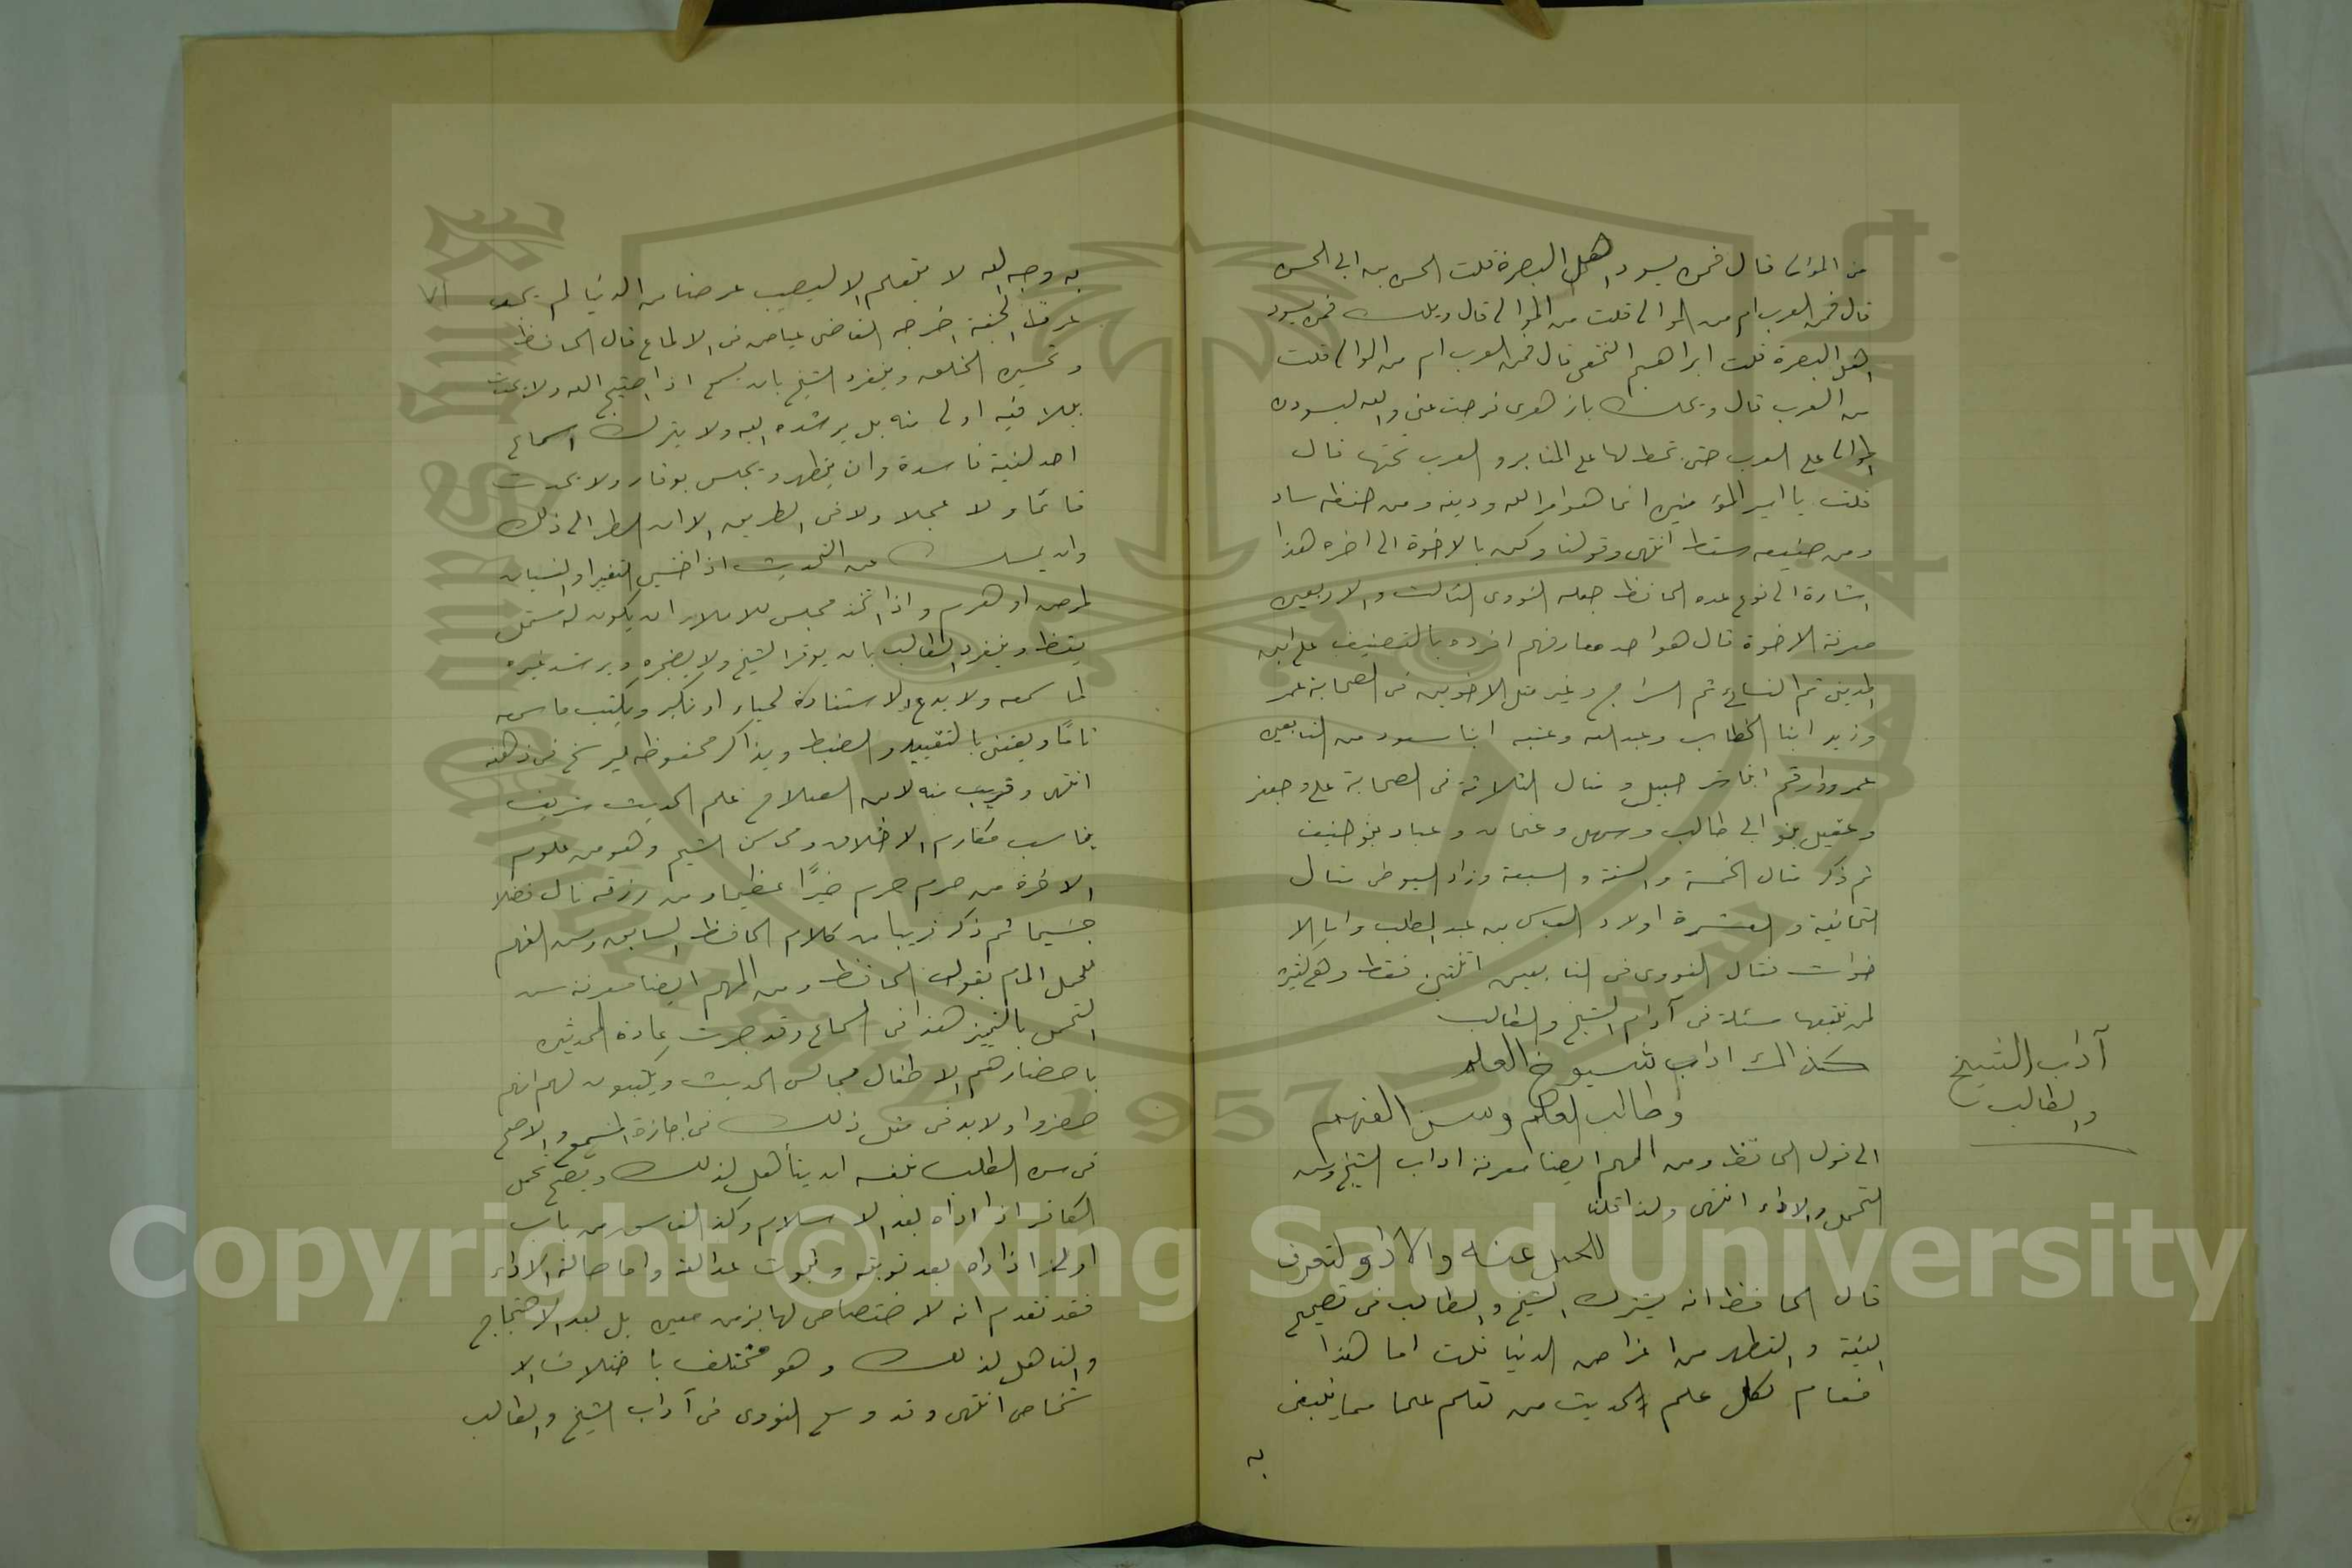 من الموالى قال فمن يسود اهل البصرة قلت الحسن بن ابى الحسن
قال فمن العرب ام من الموالى قلت من الموالى قال ويلك فمن يسود
اهل البصرة قلت ابراهيم النخعى قال فمن العرب ام من الموالى قلت
من العرب قال ويحك يا زهرى فرجت عنى والله ليسودن
الموالى على العرب حتى يخطب لها على المنابر والعرب تحتها قال
قلت يا امير المؤمنين انما هو امر الله ودينه ومن حفظه ساد
ومن ضيعه سقط انتهى وقولنا وكن بالاخوة الى اخره هذا
اشارة الى نوع عده الحافظ جعله النووى الثالث والاربعين
معرفة الاخوة قال هو احد معارفهم افرده بالتصنيف على ابن
المدينى ثم النسائى ثم السراج وغيره مثل الاخوين فى الصحابة عمر
وزيد ابنا الخطاب وعبد الله وعتبه ابنا مسعود من التابعين
عمرو وارقم ابنا شرحبيل ومثال الثلاثة فى الصحابة على وجعفر
وعقيل بنو ابى طالب وسهل وعثمان وعباد بنو حنيف
ثم ذكر مثال الخمسة والستة والسبعة وزاد السيوطى مثال
الثمانية والعشرة اولاد العباس بن عبد المطلب واما الا
خوات فقال النووى فى التابعين اثنتين فقط وهى كثيرة
لمن تتبعها مسئلة فى آداب الشيخ والطالب
كذالك اداب شيوخ العلم
وطالب العلم وسن الفهم
آداب الشيخ
والطالب
الى قول الحافظ ومن المهم ايضا معرفة اداب الشيخ وسن
التحمل والاداء انتهى ولذا قلنا
للحمل عنه والاداء لتعرف
قال الحافظ انه يشترك الشيخ والطالب فى تصحيح
النية والتطهر من اغراض الدنيا قلت اما هذا
فعام لكل علم الحديث من تعلم علما مما يبتغى
به
به وجه الله لا يتعلمه الا ليصيب عرضا من الدنيا لم يجد
عرف الجنة اخرجه القاضى عياض فى الالماع قال الحافظ
وتحسين الخلق وينفرد الشيخ بان يسمع اذا احتيج اليه ولا يحدث
ببلد فيه اولى منه بل يرشده اليه ولا يترك اسماع
احد لنية فاسدة وان يتطهر ويجلس بوقار ولا يحدث
قائما ولا عجلا ولا فى الطريق الا ان اضطر الى ذلك
وان يمسك عن التحديث اذا خشى التغير او النسيان
لمرض او هرم واذا اتخذ مجلس للاملاء ان يكون له مستمل
يقظ وينفرد الطالب بان يوقر الشيخ ولا يضجره ويرشد غيره
لما سمعه ولا يدع الاستفادة لحياء او تكبر ويكتب ما سمعه
تامًا ويعتنى بالتقييد والضبط ويذاكر محفوظه ليرسخ فى ذهنه
انتهى وقريب منه لابن الصلاح علم الحديث شريف
يناسب مكارم الاخلاق ومحاسن الشيم وهو من علوم
الاخرة من حرمه حرم خيرًا عظيما ومن رزقه نال فضلا
جسيما ثم ذكر قريبا من كلام الحافظ السابق وسن الفهم
للحمل المام بقول الحافظ ومن المهم ايضا معرفة سن
التحمل بالتمييز هذا فى السماع وقد جرت عادة المحدثين
باحضارهم الاطفال مجالس الحديث ويكتبون لهم انهم
حضروا ولابد فى مثل ذلك فى اجازة المسمع والاصح
فى سن الطلب بنفسه ان يتأهل لذلك ويصح تحمل
الكافر اذا اداه بعد الاسلام وكذا الفاسق من باب
اولى اذا اداه بعد توبته وثبوت عدالته واما حالة الاداء
فقد تقدم انه لا اختصاص لها بزمن معين بل بعد الاحتجاج
والتاهل لذلك وهو مختلف باختلاف الا
شخاص انتهى وقد وسع النووى فى آداب الشيخ والطالب
Copyright © King Saud University
1957